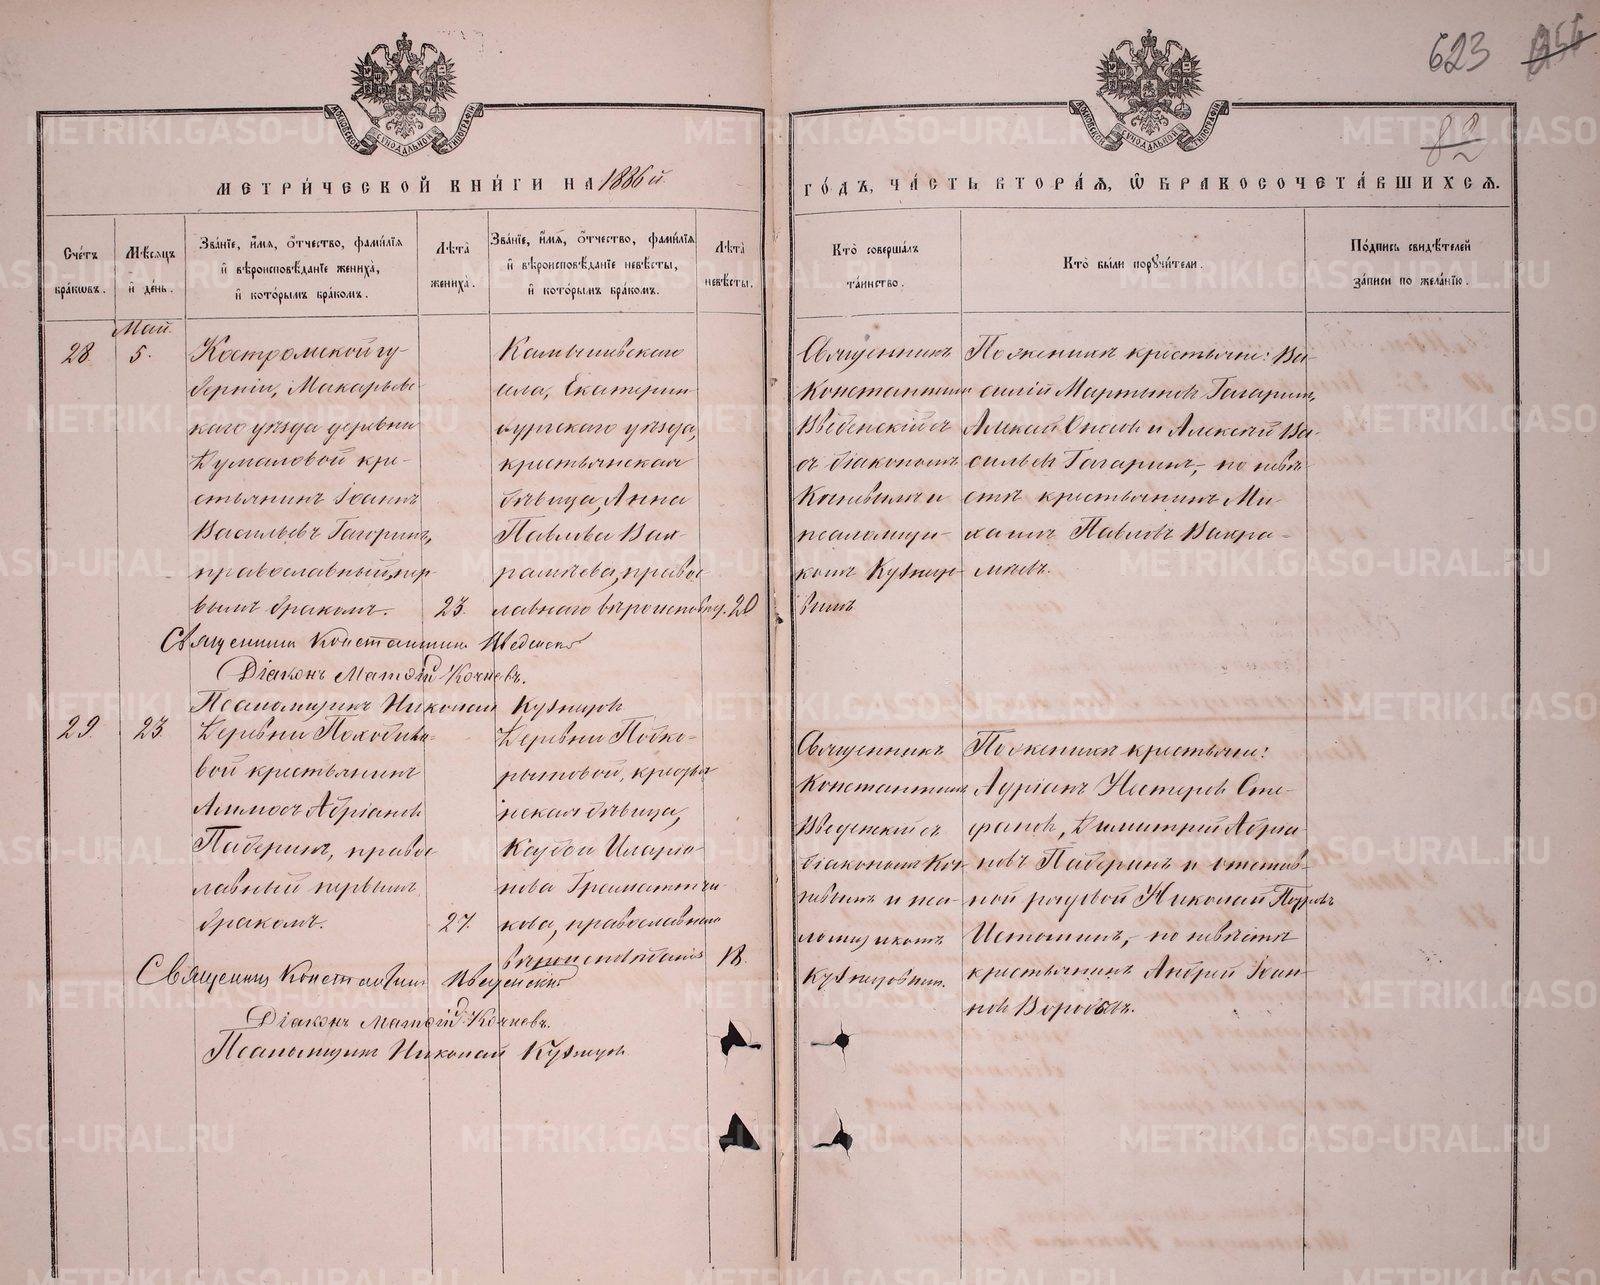 623
82
МОСКОВСКОЙ СѴНОДАЛЬНОЙ ТИПОГРАФІИ
МОСКОВСКОЙ СѴНОДАЛЬНОЙ ТИПОГРАФІИ
МЕТРИ́ЧЕСКОЙ КНИ́ГИ НА 1886й
ГО́ДЪ, ЧА́СТЬ ВТОРА́Я, Ѡ БРАКОСОЧЕТА́ВШИХСЯ.
Сче́тъ бра́кѡвъ.
Мѣ́сяцъ и҆ де́нь.
Зва́нїе, и҆́мя, о҆́тчество, фами́лїя и҆ вѣроисповѣ́данїе жениха̀, и҆ кото́рымъ бра́комъ.
Лѣ́та жениха̀.
Зва́нїе, и҆́мя, о҆́тчество, фами́лїя и҆ вѣроисповѣ́данїе невѣ́сты, и҆ кото́рымъ бра́комъ.
Лѣ́та невѣ́сты.
Кто̀ соверша́лъ та́инство.
Кто̀ бы́ли порꙋчи́тели.
По́дпись свидѣ́телей за́писи по жела́нїю.
Май.
28
5.
Костромской гу-
берніи, Макарьевс-
каго уѣзда деревни
крe-
стьянинъ Іоаннъ
Васильевъ Гагаринъ,
православный, пер
вымъ бракомъ.
23.
Камышевскаго
села, Екатерин
бургскаго уѣзда,
крестьянская
дѣвица, Анна
Павлова Вах
рамѣева, правос
лавнаго вѣроисповѣд.
20
Священникъ
Константинъ
Введенскій с
ъ діакономъ
Кочневымъ и
псаломщи-
комъ Кузнецо-
вымъ
По женихѣ крестьяне: Ва-
силій Мартыновъ Гагаринъ,
и Алексѣй Ва-
сильевъ Гагаринъ, по невѣ-
стѣ крестьянинъ Ми-
хаилъ Павловъ Вахра-
мѣевъ.
Священникъ Константинъ Введенскій
Діаконъ Матѳій Кочневъ.
Псаломщикъ Николай Кузнецовъ
29.
23.
Деревни
вой крестьянинъ
Адріановъ
Паберинъ, правос
лавный первымъ
бракомъ.
27.
Деревни
крестья
нская дѣвица,
Иларіо-
нова
кова, православнаго
вѣроисповѣданія
18.
Священникъ
Константинъ
Введенскій съ
діакономъ Коч-
невымъ и пса-
ломщикомъ
Кузнецовымъ.
По женихѣ крестьяне:
Нестеровъ Сте-
пановъ, Димитрій Адріа-
новъ Паберинъ и отстав-
ной рядовой Николай Петровъ
Истоминъ, по невѣстѣ
крестьянинъ Андрей Іоан-
новъ Воробьевъ.
Священникъ Константинъ Введенскій
Діаконъ Матѳій Кочневъ.
Псаломщикъ Николай Кузнецовъ
METRIKI.GASO-URAL.RU